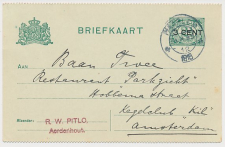 BRIEFKAART
3 CENT
Aan
Baan Twee
Restaurant Parkzicht
Hobbema straat
Kegelclub "Kil"
Amsterdam
Afzender:
R. W. PITLO.
Aerdenhout.